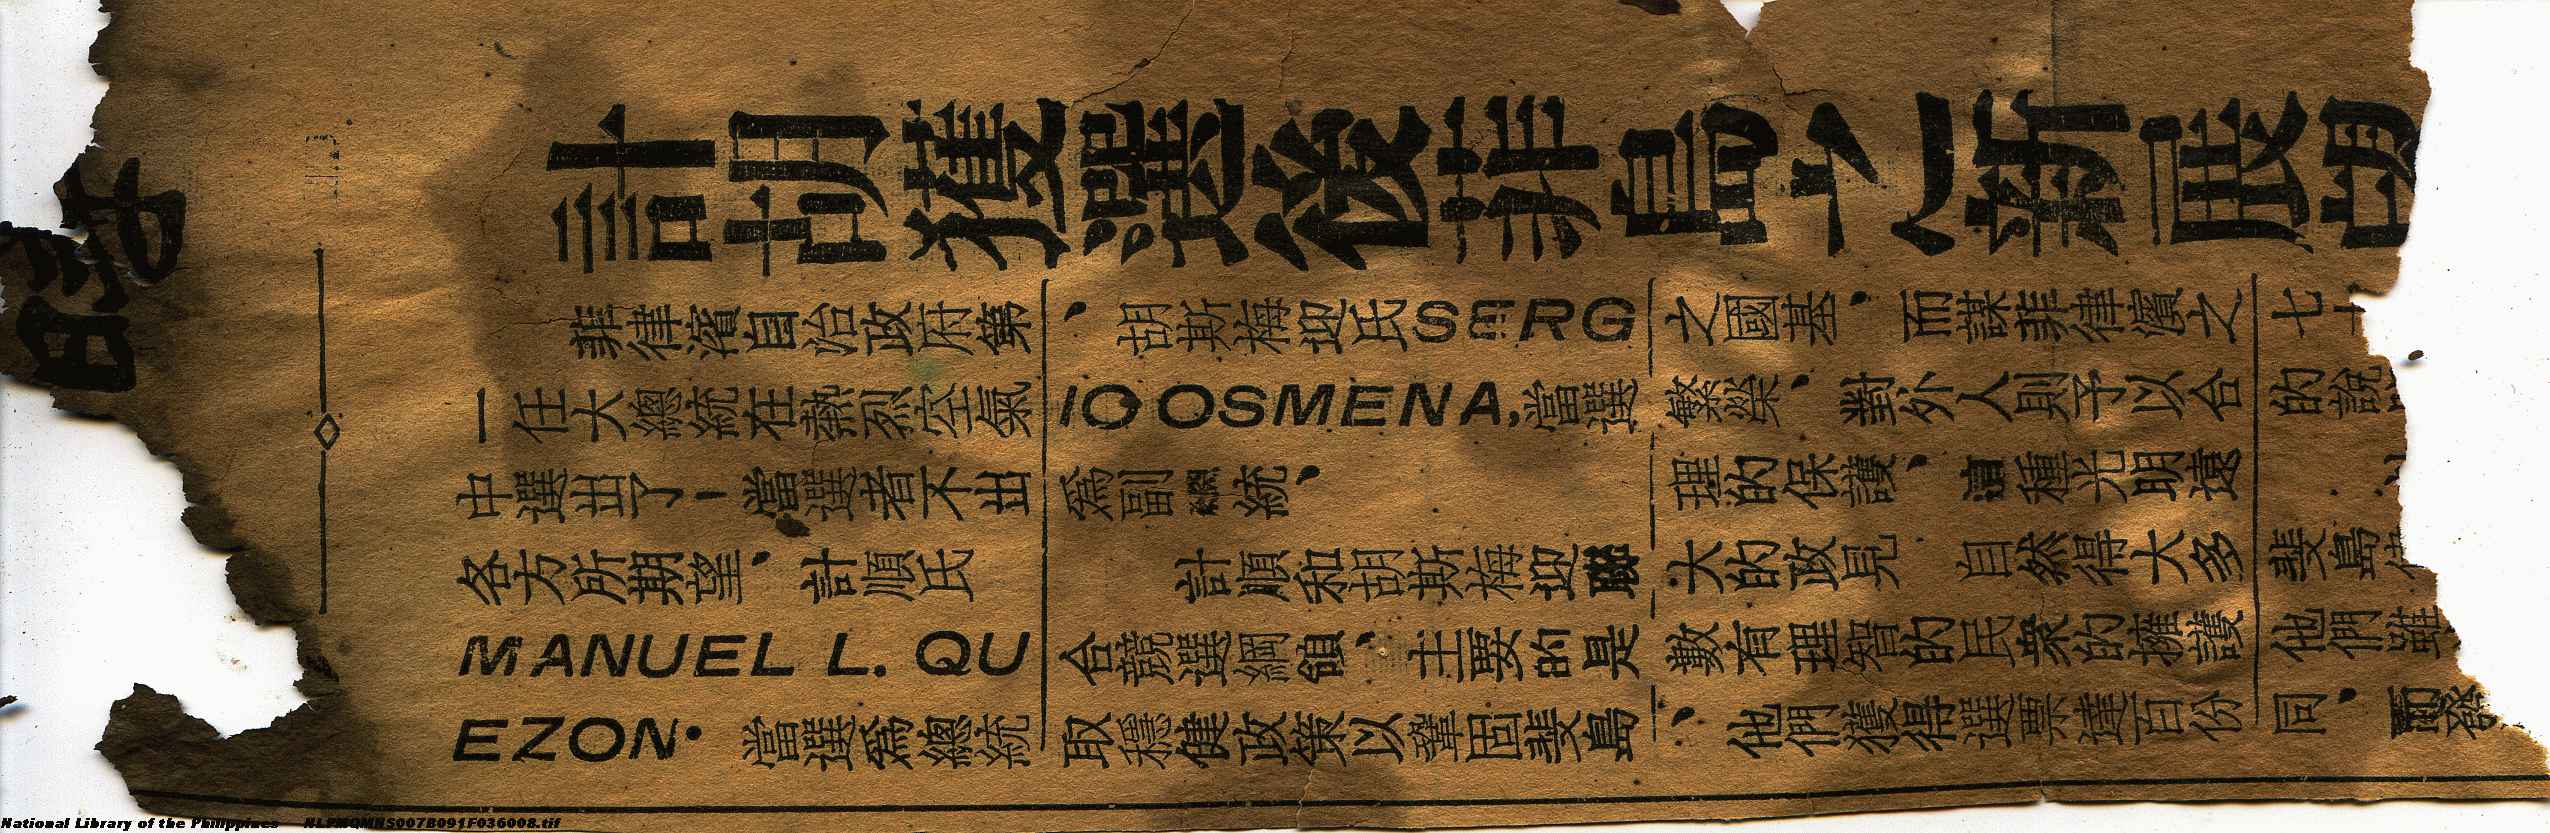 計胡獲選後菲島之新展
菲律濱自治政府第
一任大總統在熱烈空氣
中選出了—當選者不出
各方所期望、計順氏
MANUEL L. QU
EZON. 當選為總統
、胡斯梅迎氏SERG
IO OSMENA, 當選
為副總統、
計順和胡斯梅迎聯
合競選綱領、主要的是
取穩健政策以鞏固斐島
之國基、而謀菲律濱之
繁榮、對外人則予以合
理的保護、這種光明遠
大的政見 自然得大多
數有理智的民眾的擁護
、他們獲得選票達百份
七十
的說
斐島
他們雖
同、而發
National Library of the Philippines NLPMQMNS007B091F036008.tif